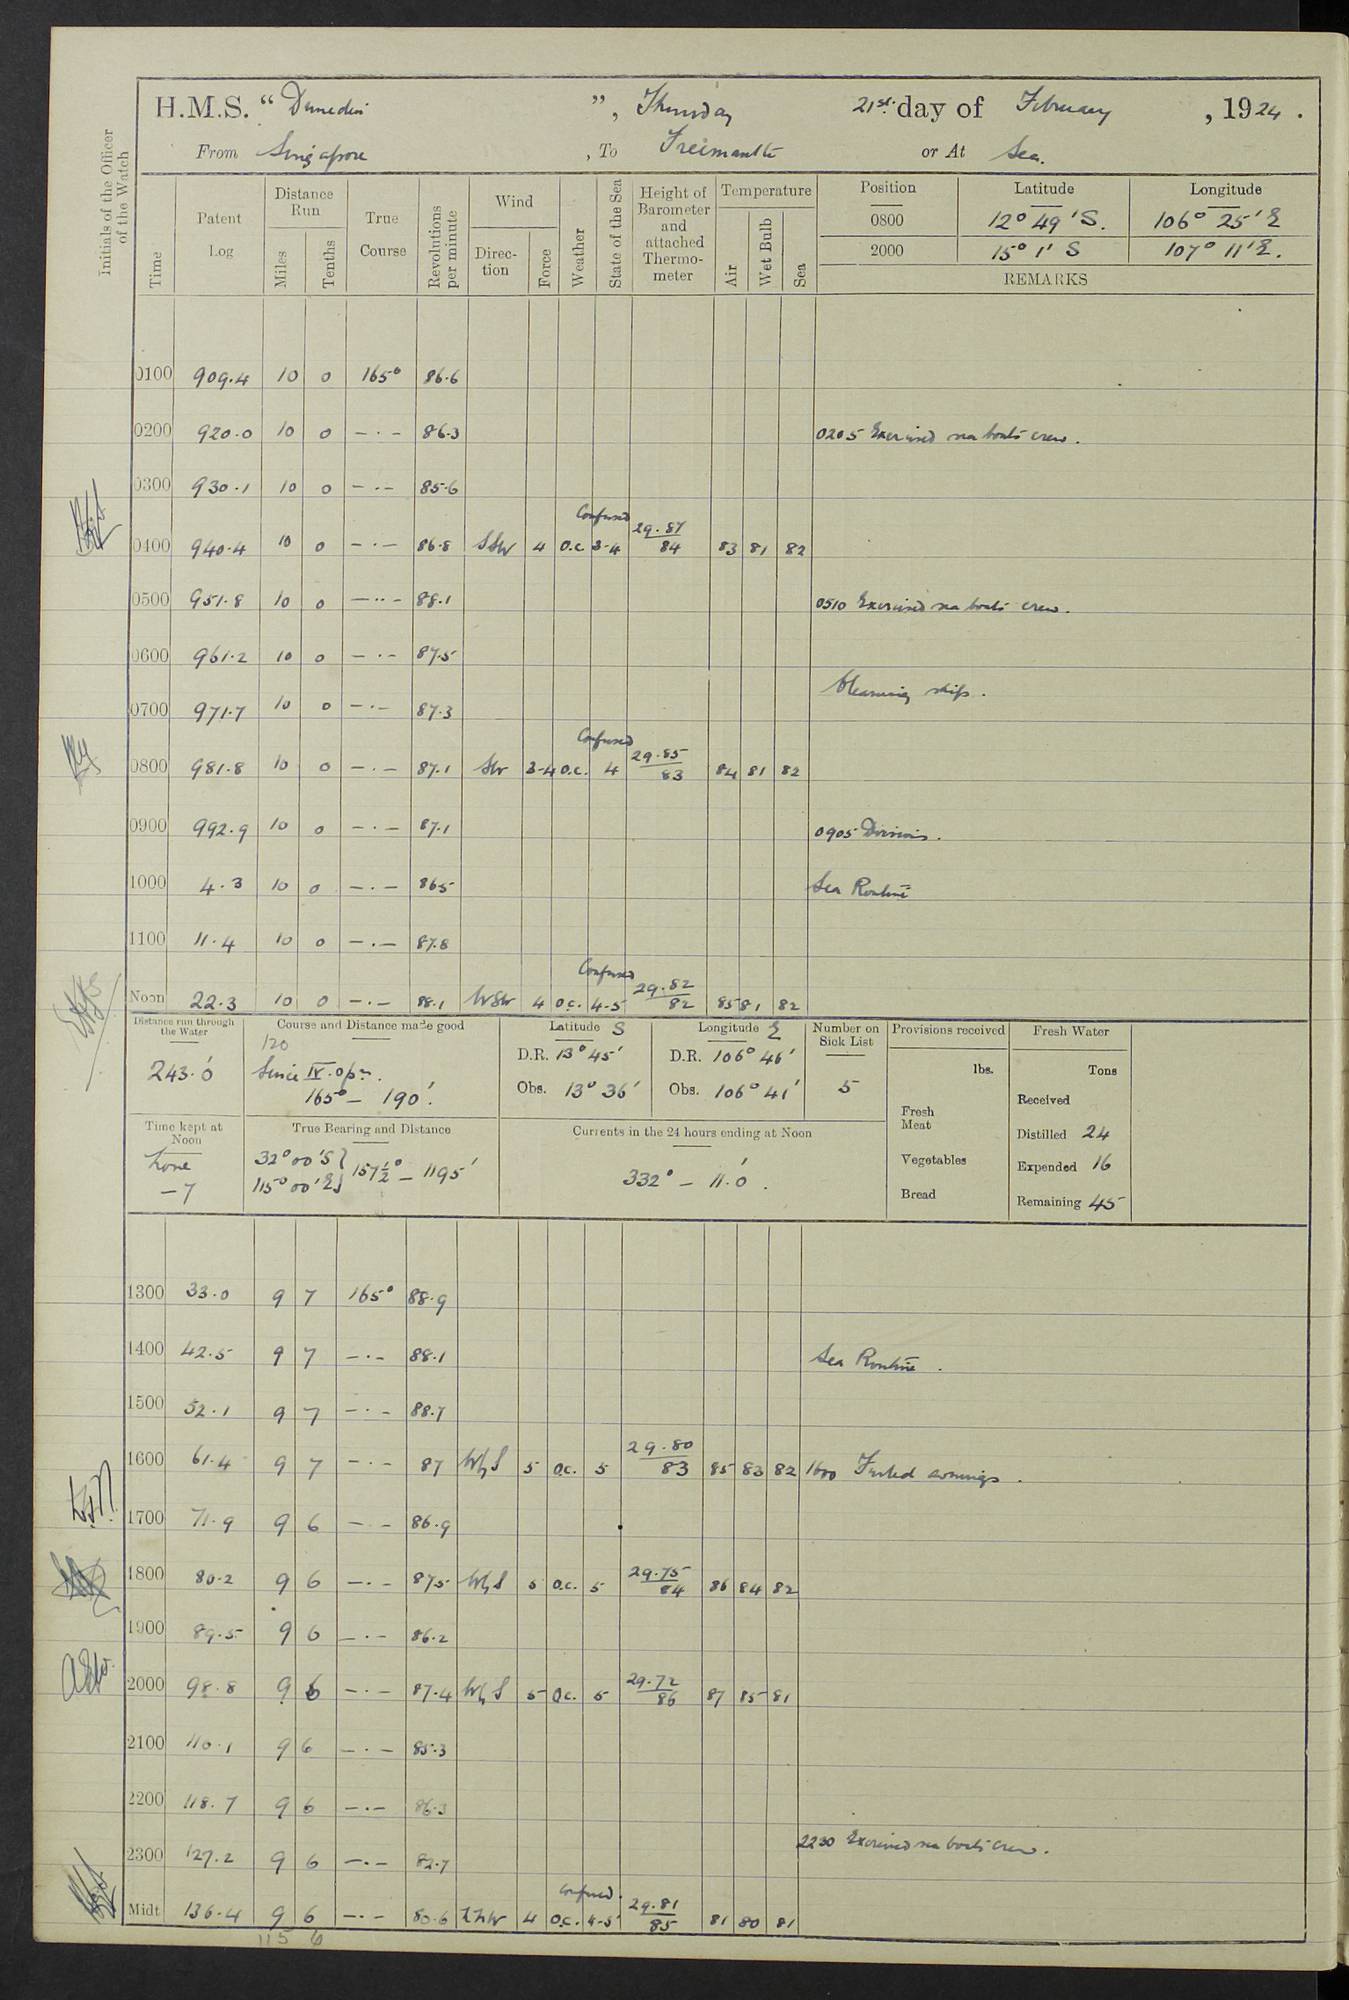 H.M.S. “ Dunedin ”, Thursday 21st. day of February , 1924 .
From Singapore , To Freemantle or At Sea.
Initials of the Officer of the Watch
Time Patent Log Distance Run Miles Tenths True Course Revolutions per minute Wind Direction Force Weather State of the Sea Height of Barometer and attached Thermometer Temperature Air Wet Bulb Sea
Position Latitude Longitude
0800 12° 49' S. 106° 25' E
2000 15° 1' S 107° 11' E.
REMARKS
0100 909.4 10 0 165° 86.6
0200 920.0 10 0 — · — 86.3 0205 Exercised sea boats crew.
0300 930.1 10 0 — · — 85.6
Confused
0400 940.4 10 0 — · — 86.8 SSW 4 O.C. 3-4 29.87 84 83 81 82
0500 951.8 10 0 — ·· — 88.1 0510 Exercised sea boats crew.
0600 961.2 10 0 — · — 87.5
Cleaning ship.
0700 971.7 10 0 — · — 87.3
Confused
0800 981.8 10 0 — · — 87.1 SW 3-4 O.C. 4 29.85 83 84 81 82
0900 992.9 10 0 — · — 87.1 0905 Divisions.
1000 4.3 10 0 — · — 86.5 Sea Routine
1100 11.4 10 0 — · — 87.8
Confused
Noon 22.3 10 0 — · — 88.1 WSW 4 O.C. 4-5 29.82 82 85 81 82
Distance run through the Water 243.0'
Course and Distance made good
120
Since IV.0 pm.
165° — 190'.
Latitude S
D.R. 13° 45'
Obs. 13° 36'
Longitude E
D.R. 106° 46'
Obs. 106° 41'
Number on Sick List 5
Provisions received
lbs.
Fresh Meat
Vegetables
Bread
Fresh Water
Tons
Received
Distilled 24
Expended 16
Remaining 45
Time kept at Noon
Zone
— 7
True Bearing and Distance
32° 00' S } 157½° — 1195'
115° 00' E
Currents in the 24 hours ending at Noon
332° — 11.0'.
1300 33.0 9 7 165° 88.9
1400 42.5 9 7 — · — 88.1 Sea Routine.
1500 52.1 9 7 — · — 88.7
1600 61.4 9 7 — · — 87 WbyS 5 O.C. 5 29.80 83 85 83 82 1600 Furled awnings.
1700 71.9 9 6 — · — 86.9
1800 80.2 9 6 — · — 87.5 WbyS 5 O.C. 5 29.75 84 86 84 82
1900 89.5 9 6 — · — 86.2
2000 98.8 9 6 — · — 87.4 WbyS 5 O.C. 5 29.72 86 87 85 81
2100 110.1 9 6 — · — 85.3
2200 118.7 9 6 — · — 86.3
2230 Exercised sea boats crew.
2300 127.2 9 6 — · — 82.7
Confused.
Midt 136.4 9 6 — · — 80.6 4 O.C. 4-5 29.81 85 81 80 81
115 6